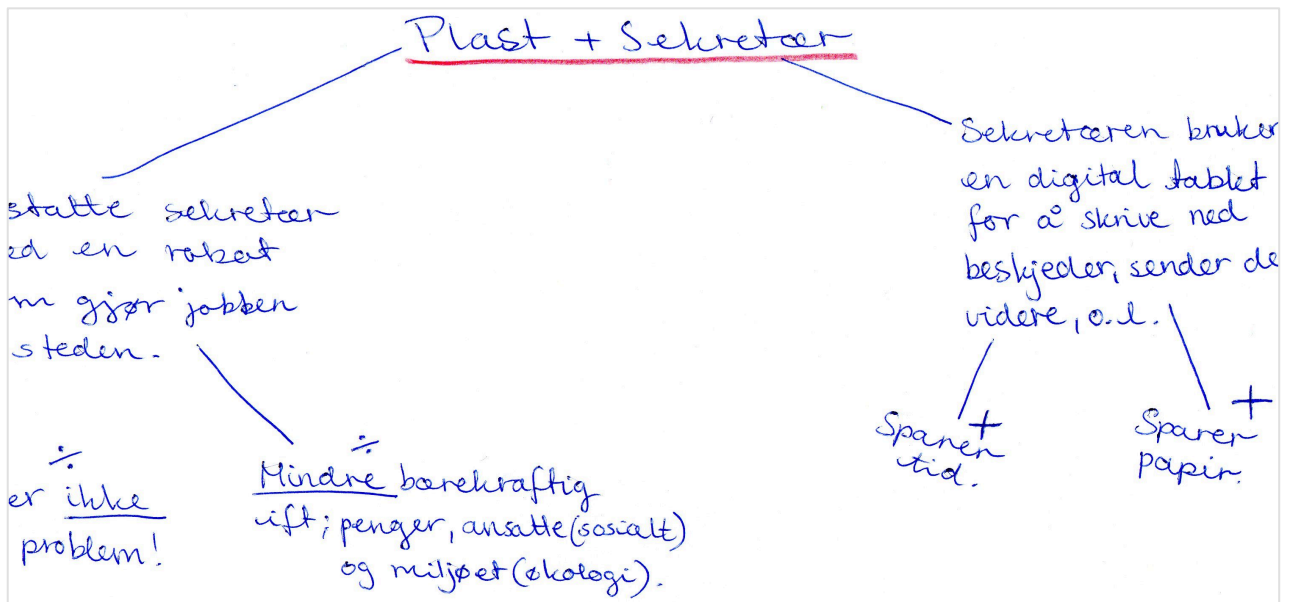 Plast + Sekretær
statte sekretær
ed en robot
m gjør jobben
steden.
÷
er ikke
problem!
÷
Mindre bærekraftig
ift; penger, ansatte (sosialt)
og miljøet (økologi).
Sekretæren bruker
en digital tablet
for å skrive ned
beskjeder, sender de
videre, o.l.
+
Sparer
tid.
+
Sparer
papir.